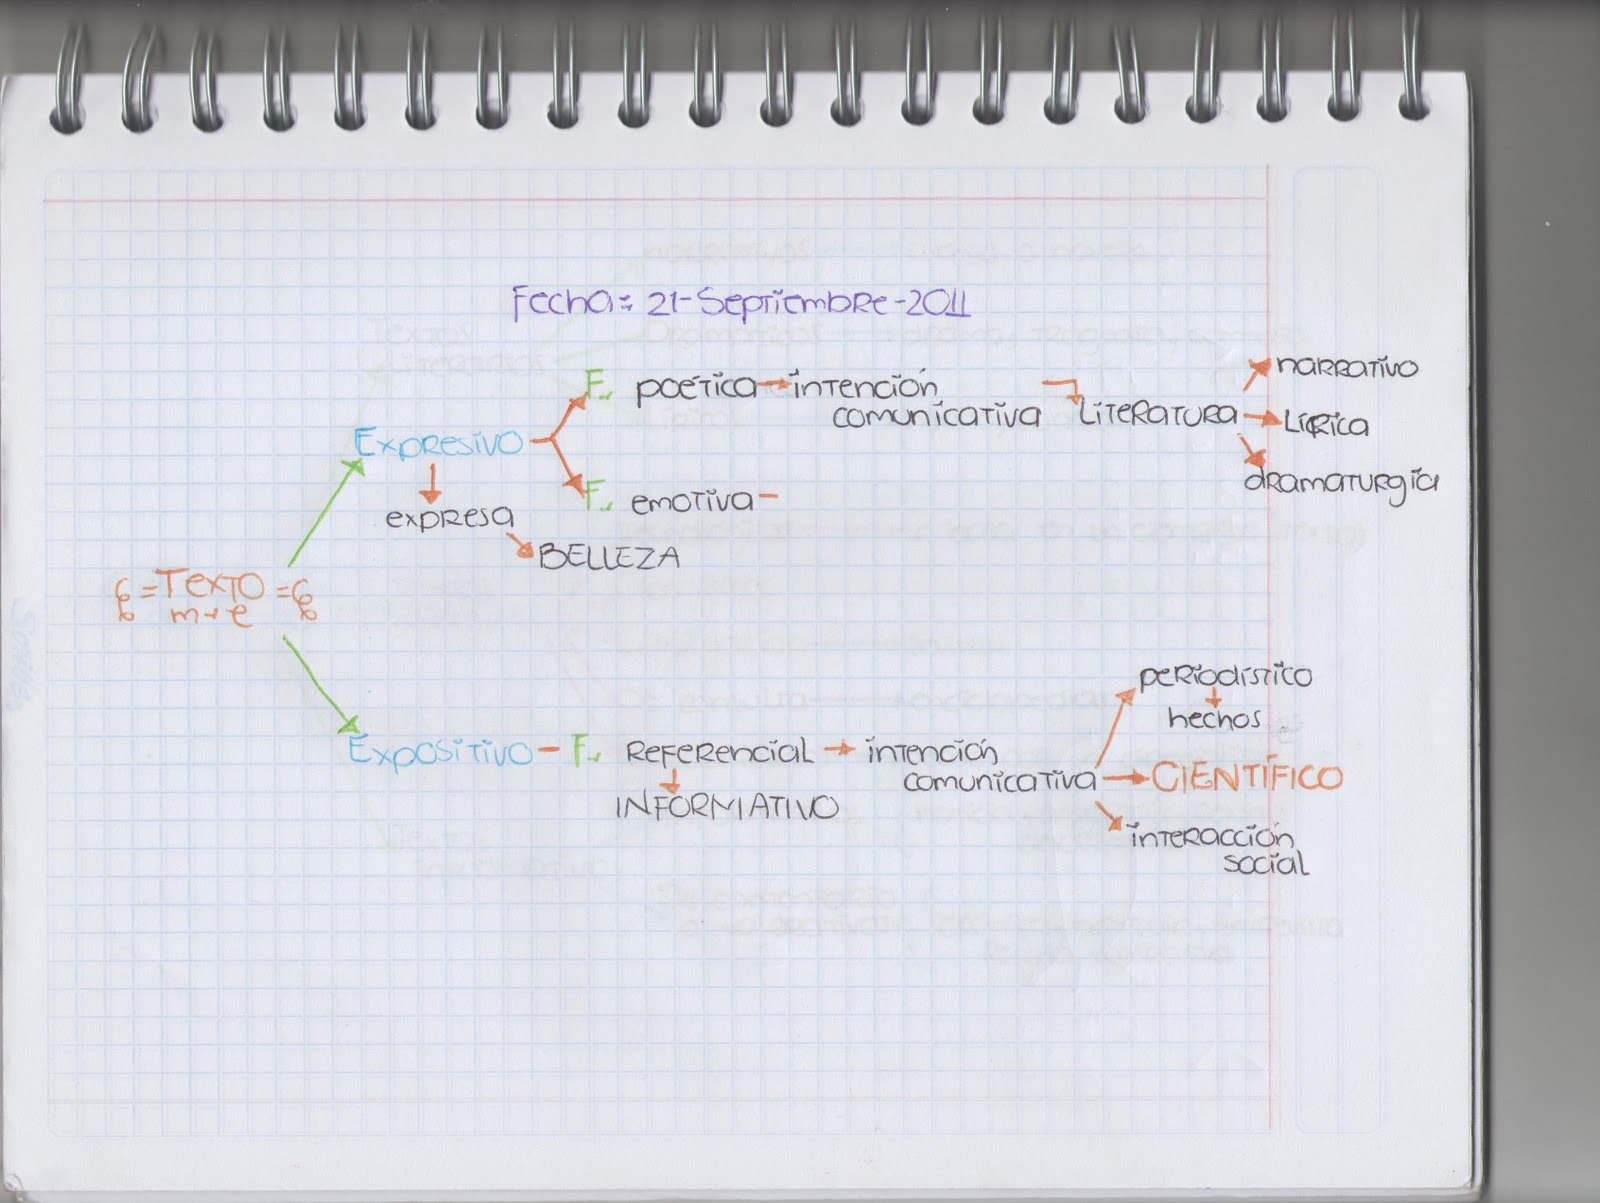 Fecha: 21-Septiembre-2011
Texto
m+e
Expresivo
expresa
BELLEZA
F. poética → intención
comunicativa
Literatura
narrativo
Lírica
dramaturgia
F. emotiva -
Expositivo - F. Referencial → intención
comunicativa
INFORMATIVO
periodístico
hechos
CIENTÍFICO
interacción
social